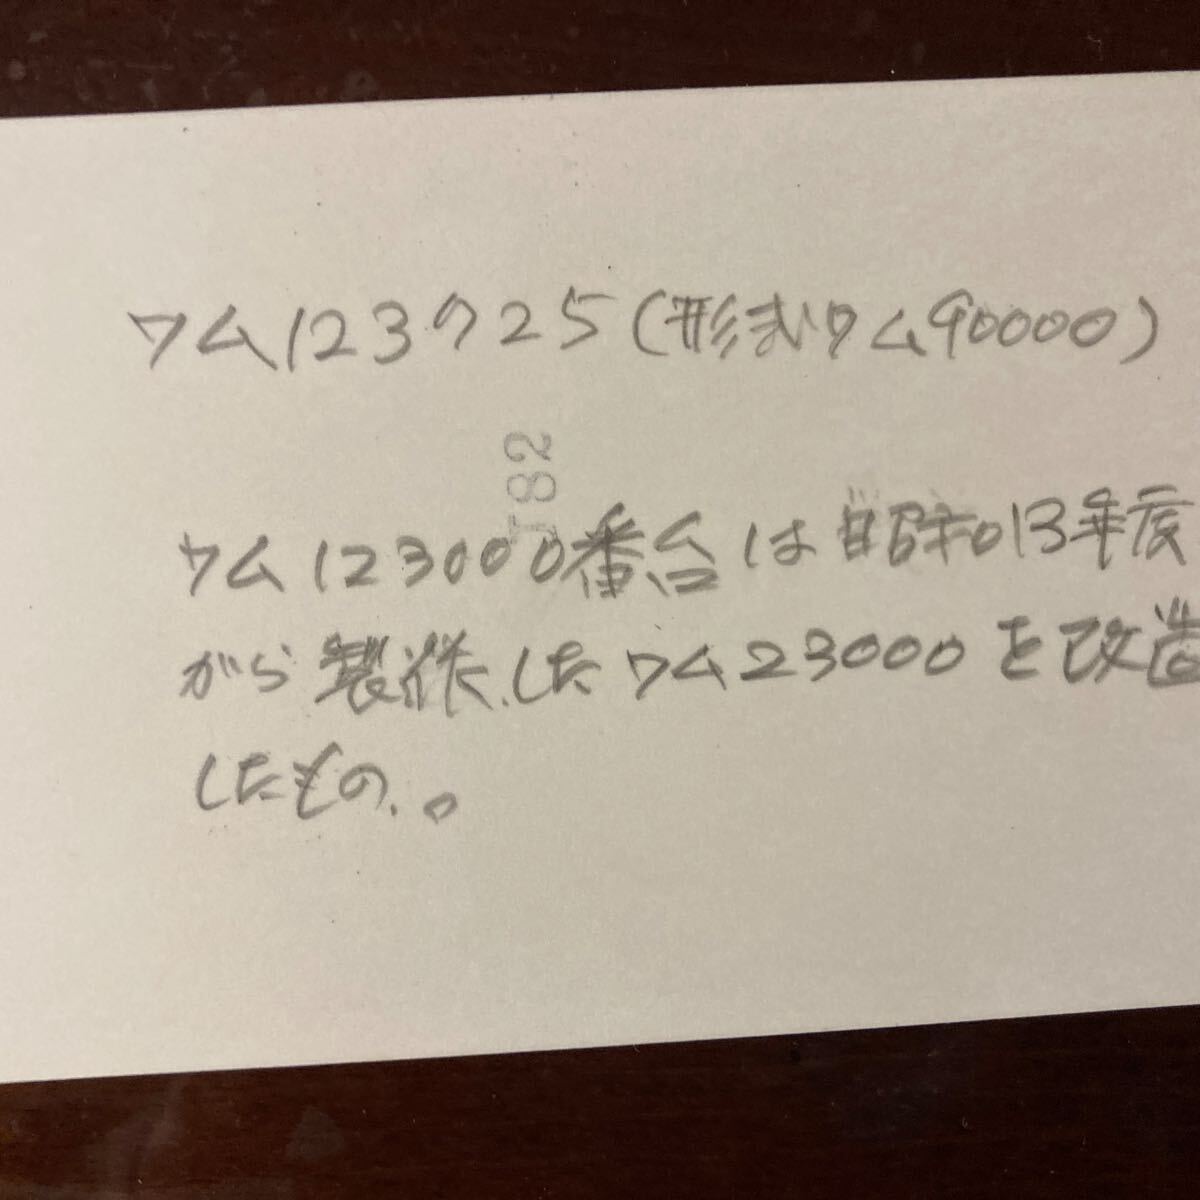 ワム123725(形式ワム90000)
J82
ワム123000番台は昭和13年度
から製作したワム23000を改造
したもの。